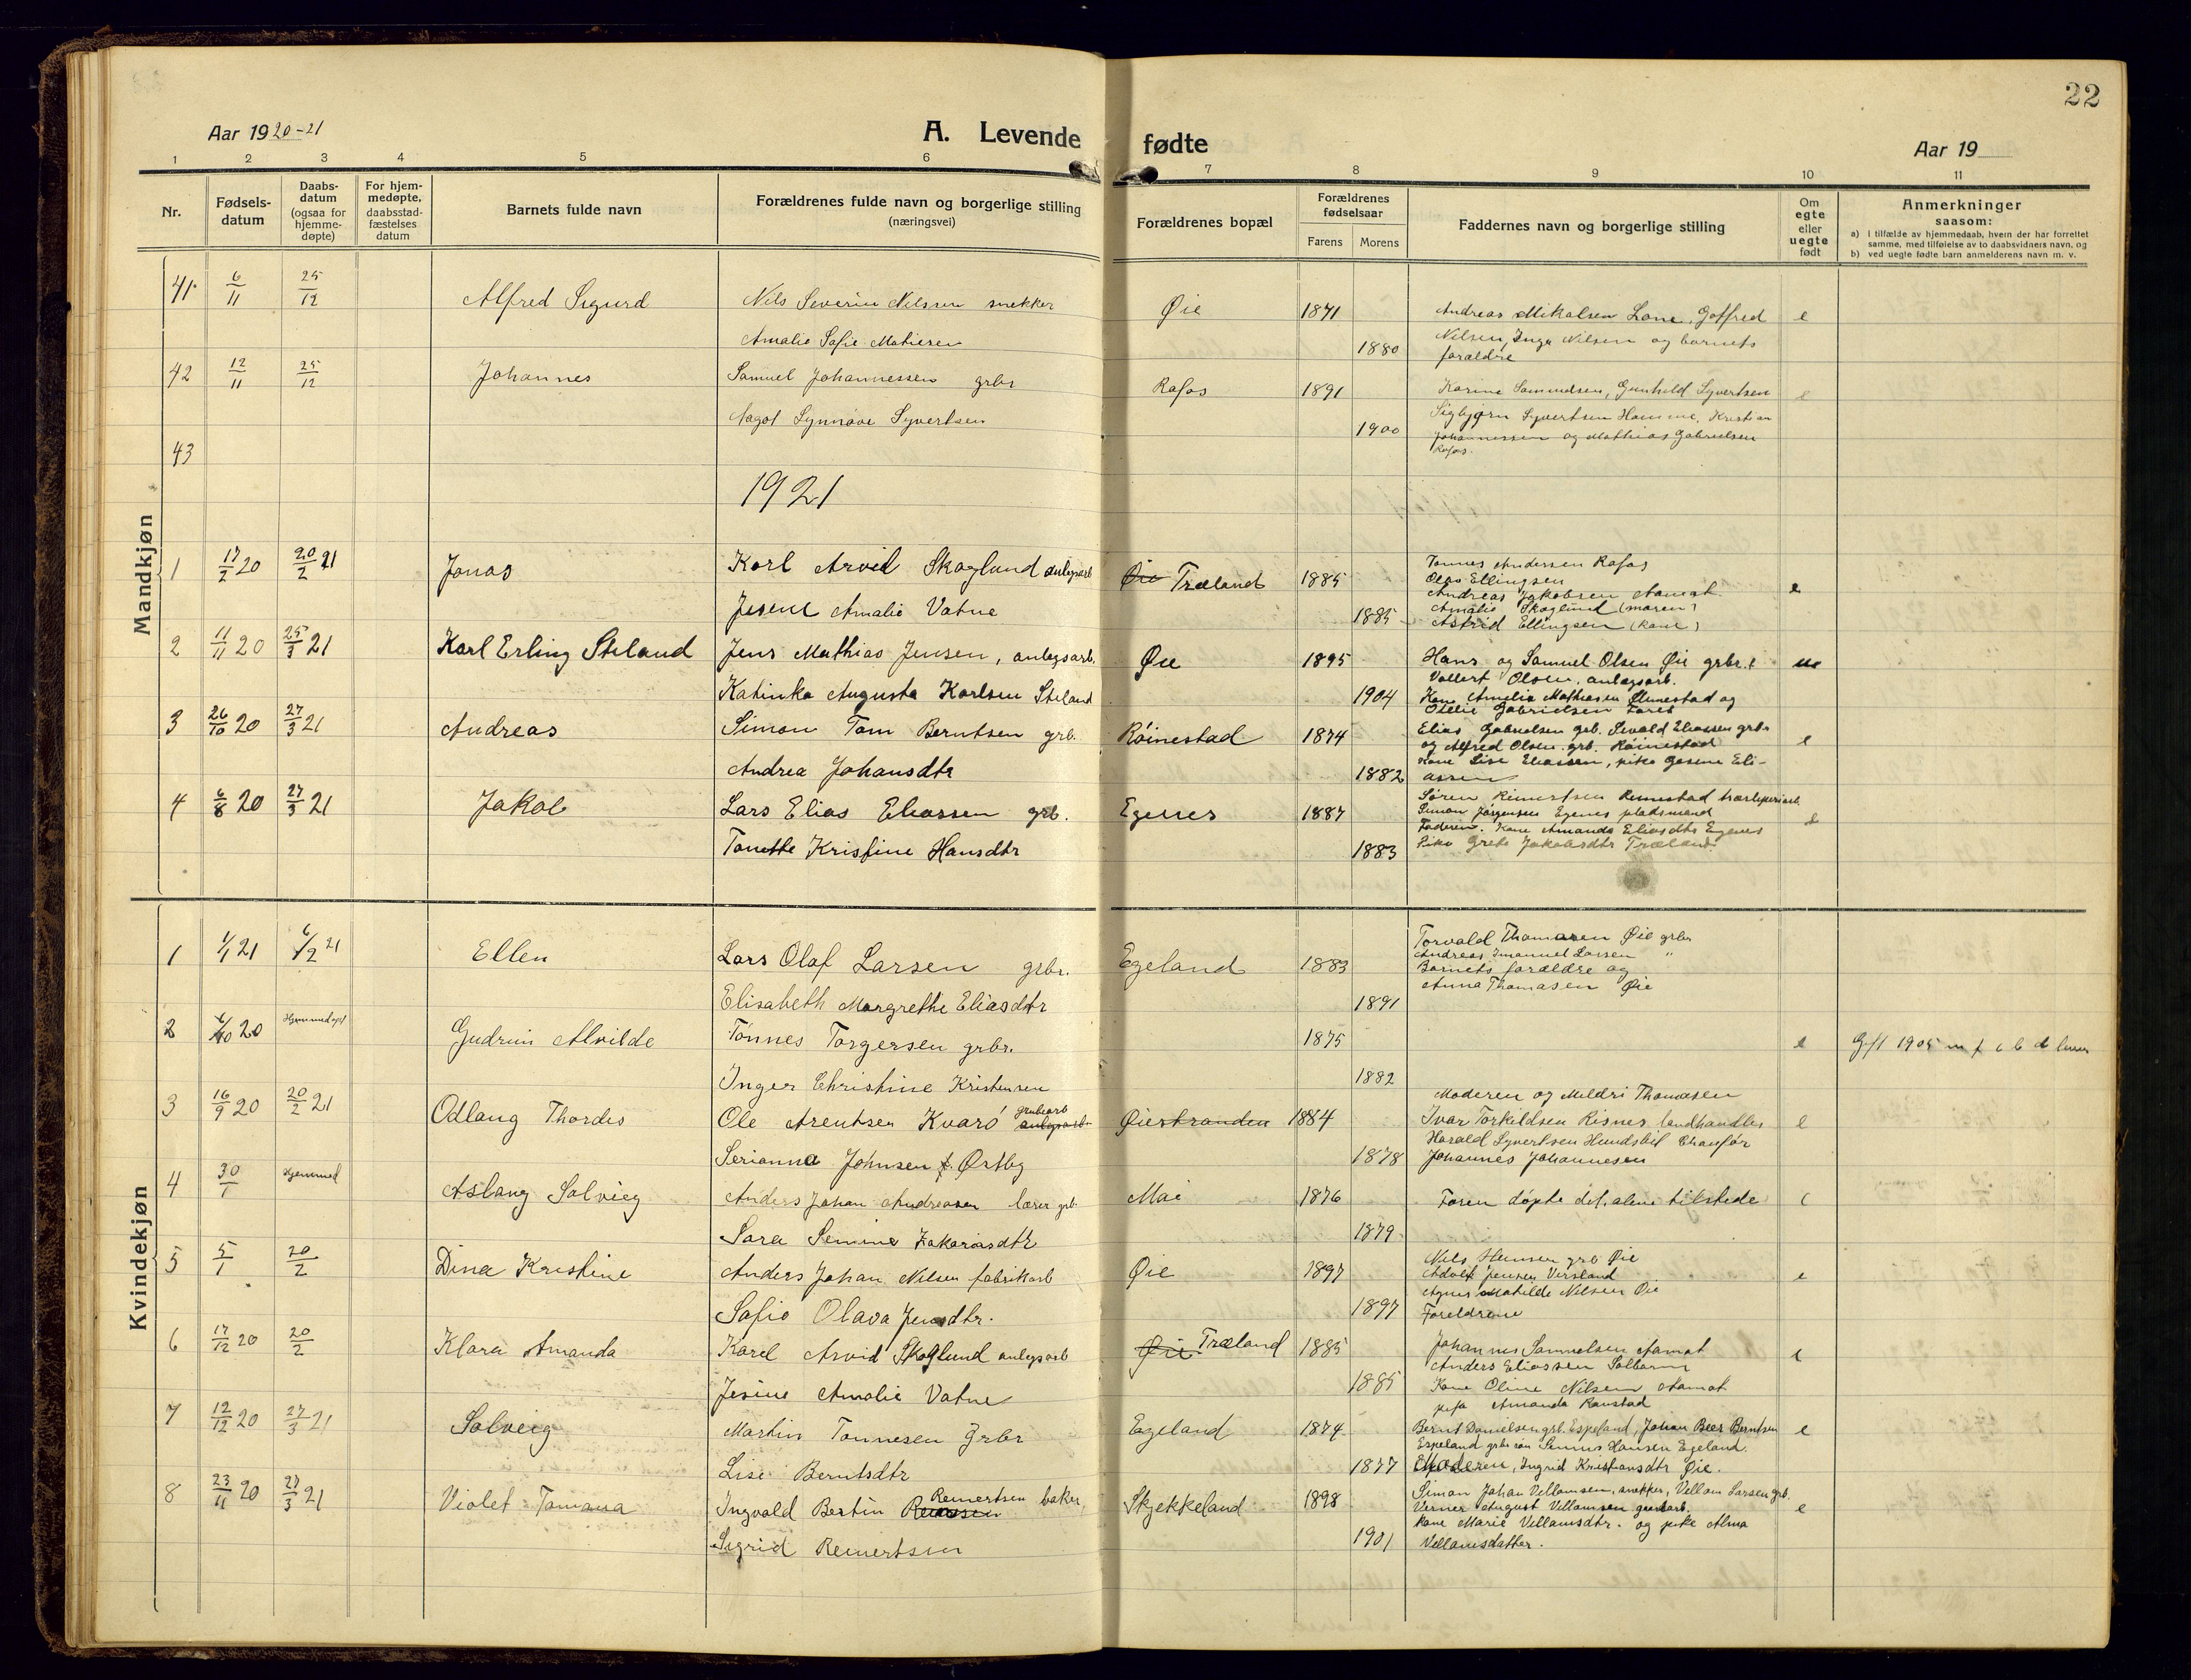 22
Aar 1920-21
A. Levende fødte
Aar 19
1 2 3 4 5 6 7 8 9 10 11
Nr.
Fødsels-
datum
Daabs-
datum
(ogsaa for
hjemme-
døpte)
For hjem-
medøpte,
daabsstad-
fæstelses
datum
Barnets fulde navn
Forældrenes fulde navn og borgerlige stilling
(næringsvei)
Forældrenes bopæl
Forældrenes
fødselsaar
Farens Morens
Faddernes navn og borgerlige stilling
Om
egte
eller
uegte
født
Anmerkninger
saasom:
a) i tilfælde av hjemmedaab, hvem der har forrettet
samme, med tilføielse av to daabsvidners navn, og
b) ved uegte fødte barn anmelderens navn m. v.
Mandkjøn
41 6/11 25/12 Alfred Sigurd Nils Severin Nilssen snekker Øie 1871 Andreas Mikalsen Lone, Gotfred e
Amalie Safie Matiesen 1880 Nilsen, Inga Nilsen og barnets
forældre
42 12/11 25/12 Johannes Samuel Johannessen grbr Rafos 1891 Karine Samuelsen, Gunhild Syvertsen e
Aagot Synnøve Syvertsen 1900 Sigbjørn Syvertsen Homme, Kristian
Johannessen og Mathias Gabrielsen
Rafos.
43
1921
1 17/2 20 20/2 21 Jonas Karl Arvid Skoglund anlegsarb Øie Træland 1885 Tønnes Andersen Rafos
Olav Ellingsen
Andreas Jakobsen Aamot e
Jesine Amalie Vatne 1885 Amalie Skoglund (moren)
Astrid Ellingsen (kone)
2 11/11 20 25/3 21 Karl Erling Steland Jens Mathias Jensen, anlegsarb. Øie 1895 Hans og Samuel Olsen Øie grbr. ue
Vallert Olsen, anlegsarb.
Katinka Augusta Karlsen Steland 1904 Kone Amelia Mathiesen Unnestad og
Otelie Gabrielsen
3 26/10 20 27/3 21 Andreas Simon Tom Berntsen grb. Røinestad 1874 Elias Gabrielsen grb. Sevald Eliassen grbr
og Alfred Olsen. grb. Røinestad e
Andrea Johansdtr 1882 Kone Lise Eliassen, pike Gesine Eli-
assen
4 6/8 20 27/3 21 Jakob Lars Elias Eliassen grb. Egenes 1887 Søren Reinertsen Reinestad træsliperiarb.
Simon Jørgensen Egenes pladsmand
Faderen. Kone Amanda Eliasdtr Egenes e
Tonette Kristine Hansdtr 1883 Pike Grete Jakobsdtr Træland.
Kvindekjøn
1 1/1 21 6/2 21 Ellen Lars Olaf Larsen grbr. Egeland 1883 Torvald Thomasen Øie grbr
Andreas Imanuel Larsen "
Barnets forældre og
Elisabeth Margrethe Eliasdtr 1891 Anna Thomasen Øie
2 6/10 20 Hjemmedøpt Gudrun Alvilde Tønnes Torgersen grbr. 1875 e Gift 1905
Inger Christine Kristensen 1882
3 16/9 20 20/2 21 Odlaug Thordis Ole Arentsen Kvarø grubearb anlegsarb Øiestranden 1884 Moderen og Meldri Thomasen
Ivar Torkildsen Risnes landhandler e
Harald Syvertsen Hundskil Chauffør
Serianna Johnsen f. Østby 1878 Johannes Johannesen
4 30/1 Hjemmed Aslaug Solveig Anders Johan Andreasen lærer grb Moi 1876 Faren døpte det. alene tilstede e
Sara Semine Zakariasdtr 1879
5 5/1 20/2 Dina Kristine Anders Johan Nilsen fabrikarb Øie 1897 Nils Hansen grb Øie
Adolf Jensen Virsland e
Agnes Mathilde Nilsen Øie
Safie Olava Jensdtr. 1897 Foreldrene
6 17/12 20 20/2 Klara Amanda Karel Arvid Skoglund anlegsarb Øie Træland 1885 Johannes Samuelsen Aamot e
Anders Eliassen
Jesine Amalie Vatne 1885 Kone Oline Nilsen Aamot
pike Amanda
7 12/12 20 27/3 21 Solveig Martin Tønnesen Grbr Egeland 1874 Bernt Danielsen grb. Espeland, Johan Beer Berntsen e
Espeland grbr søn Hansen Egeland.
Lise Berntsdtr 1877 Moderen, Ingrid Kristiansdtr Øie.
8 23/11 20 27/3 21 Violet Tomana Ingvald Bertin Reinertsen baker Skjekkeland 1898 Simon Johan Vellamsen, snekker, Vellam Larsen grb.
Verner August Vellamsen e
Sigrid Reinertsen 1901 kone Marie Vellamsdtr. og pike Alma
Vellamsdatter.